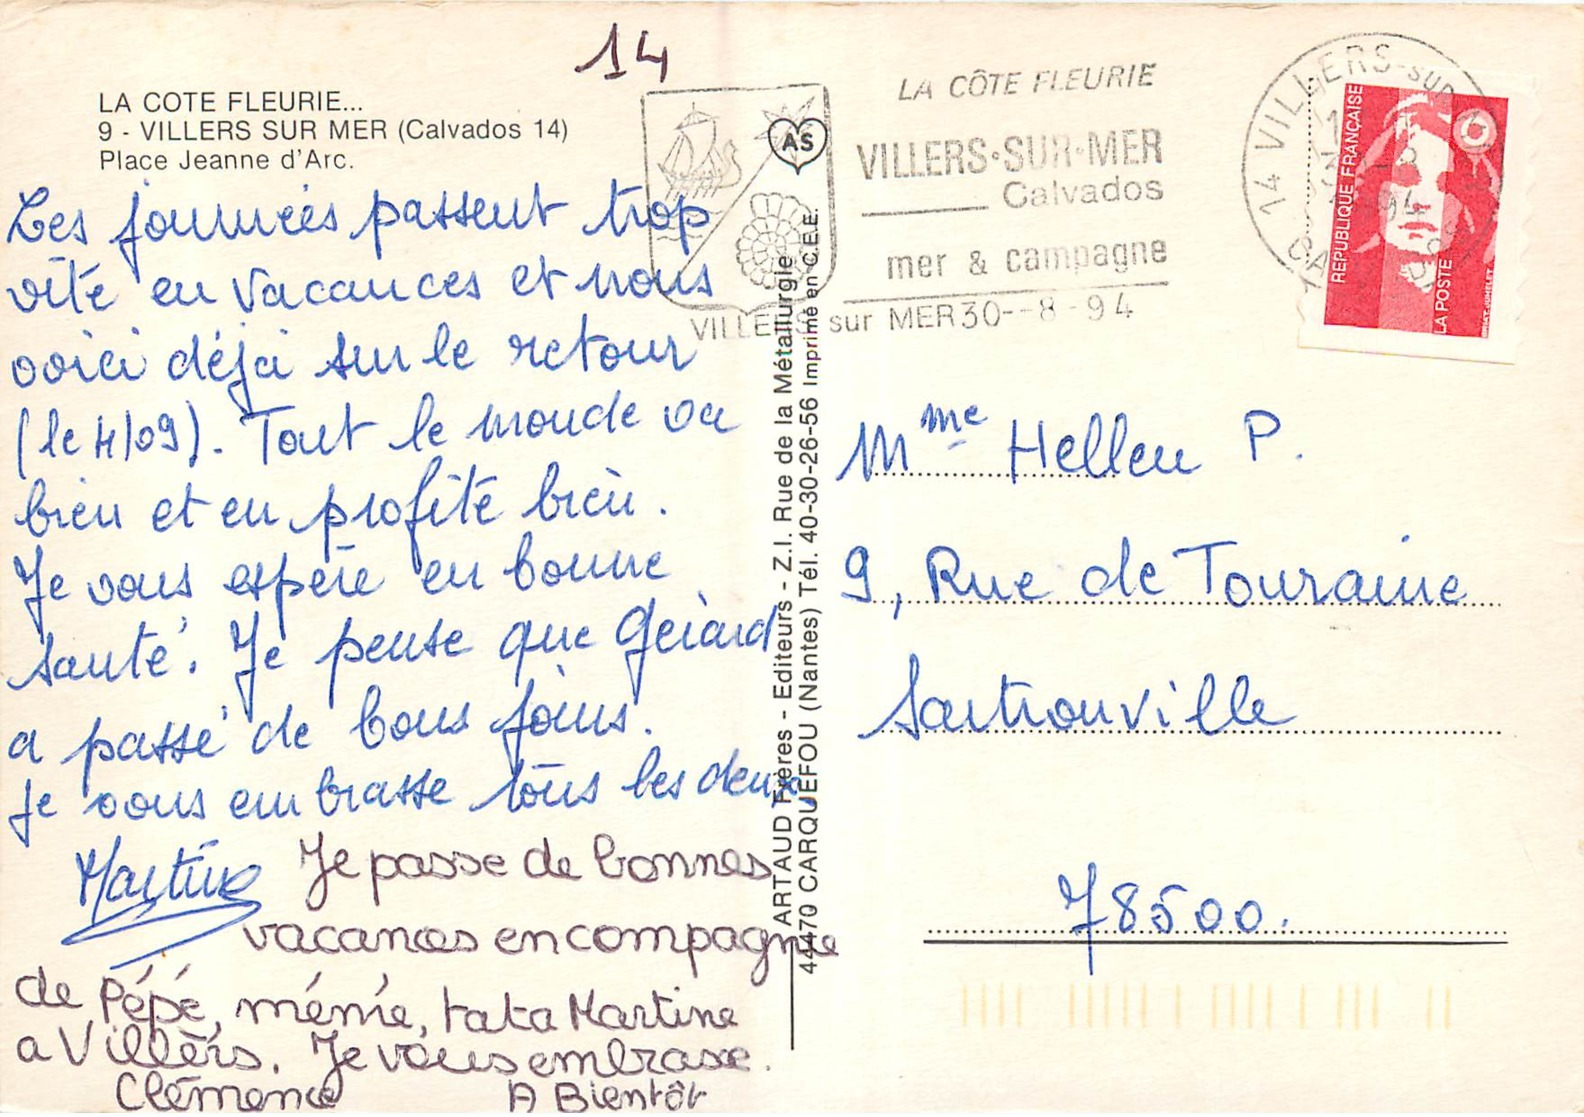 14
LA COTE FLEURIE...
9 - VILLERS SUR MER (Calvados 14)
Place Jeanne d'Arc.
Les journées passent trop
vite en vacances et nous
voici déjà sur le retour
(le 4/09). Tout le monde va
bien et en profite bien.
Je vous espère en bonne
santé. Je pense que Gérard
a passé de bons jours.
Je vous embrasse tous les deux.
Martine
Je passe de bonnes
vacances en compagnie
de Pépé, mémé, tata Martine
a Villers. Je vous embrasse.
Clémence A Bientôt
ARTAUD Frères - Editeurs - Z.I. Rue de la Métallurgie
44470 CARQUEFOU (Nantes) Tél. 40-30-26-56 Imprimé en C.E.E.
AS
LA CÔTE FLEURIE
VILLERS·SUR·MER
Calvados
mer & campagne
VILLERS sur MER 30--8-94
14 VILLERS-sur
CA
94
REPUBLIQUE FRANÇAISE
LA POSTE
Mme Helleu P.
9, Rue de Touraine
Sartrouville
78500.